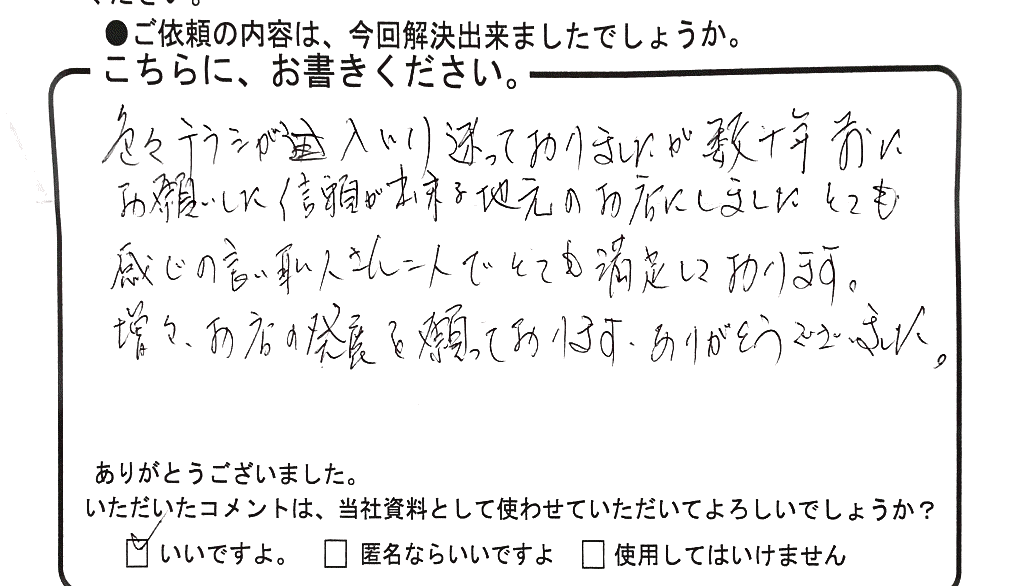 ください。
●ご依頼の内容は、今回解決出来ましたでしょうか。
こちらに、お書きください。
色々チラシが入り迷っておりましたが数十年前に
お願いした信頼が出来る地元のお店にしましたとても
感じの良い職人さん二人でとても満足しております。
増々、お店の発展を願っております。ありがとうございました。
ありがとうございました。
いただいたコメントは、当社資料として使わせていただいてよろしいでしょうか？
☑いいですよ。 □匿名ならいいですよ □使用してはいけません